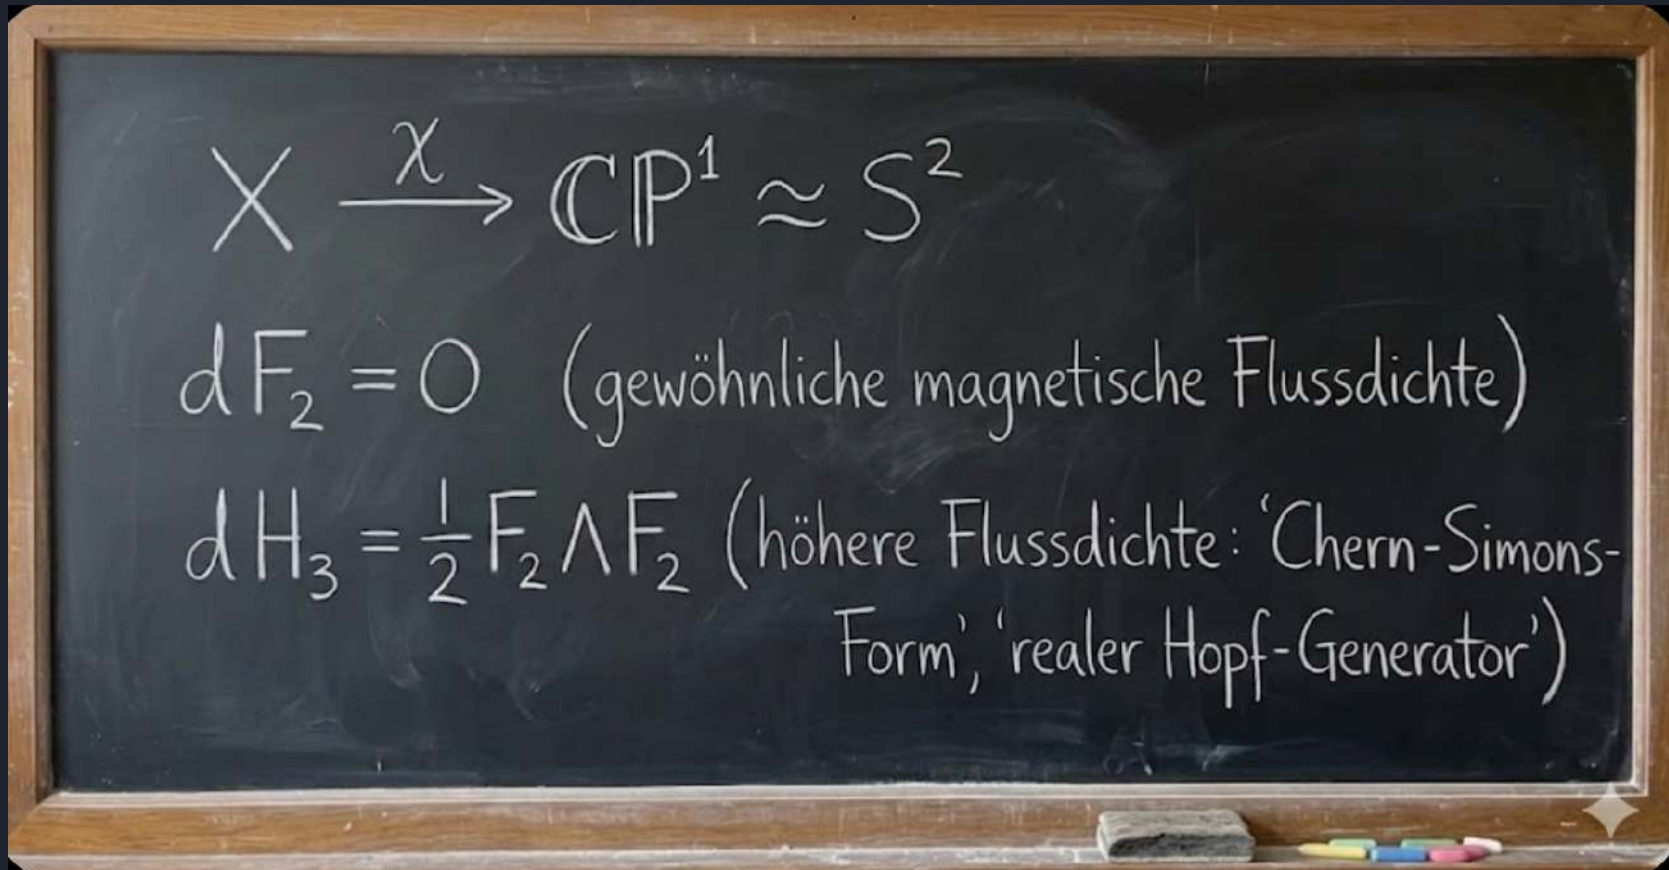 X \xrightarrow{χ} ℂℙ¹ ≈ S²
dF₂ = 0 (gewöhnliche magnetische Flussdichte)
dH₃ = ½ F₂ ∧ F₂ (höhere Flussdichte: ‘Chern-Simons-
Form’, ‘realer Hopf-Generator’)